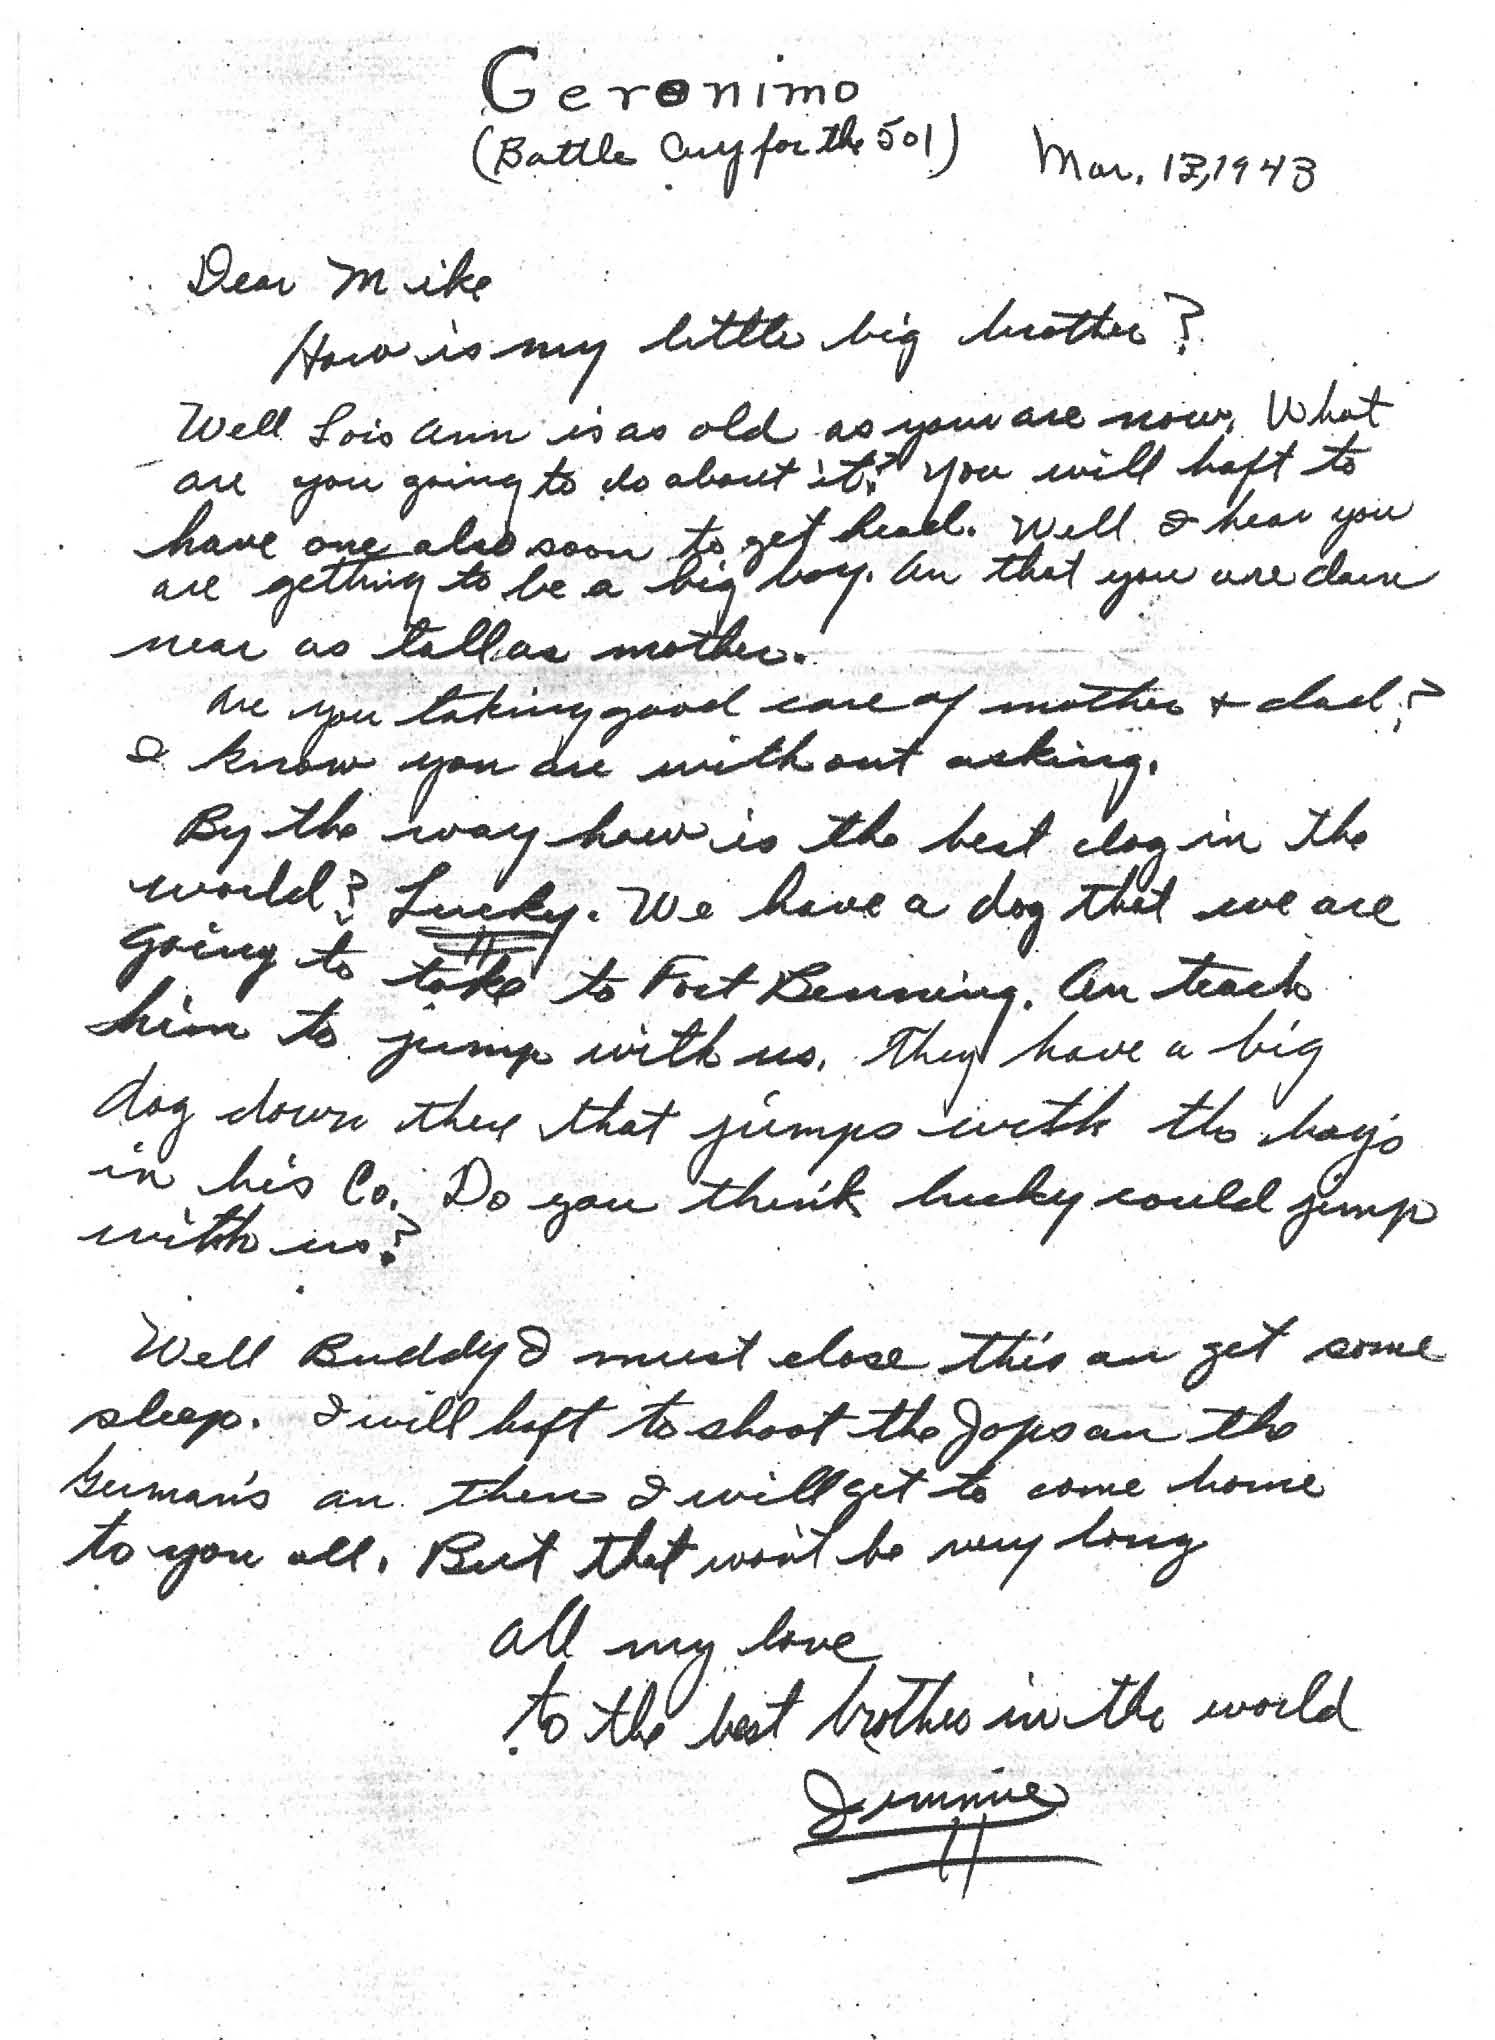 Geronimo
(Battle Cry for the 501)
Mar. 13, 1943
Dear Mike
How is my little big brother?
Well Lois Ann is as old as you are now. What
are you going to do about it? You will haft to
have one also soon to get head. Well I hear you
are getting to be a big boy. An that you are darn
near as tall as mother.
Are you taking good care of mother + dad?
I know you are without asking.
By the way how is the best dog in the
world? Lucky. We have a dog that we are
going to take to Fort Benning. An teach
him to jump with us. They have a big
dog down there that jumps with the boy's
in his Co. Do you think lucky could jump
with us?
Well Buddy I must close this an get some
sleep. I will haft to shoot the Japs an the
German's an then I will get to come home
to you all. But that won't be very long
All my love
to the best brother in the world
Jimmie